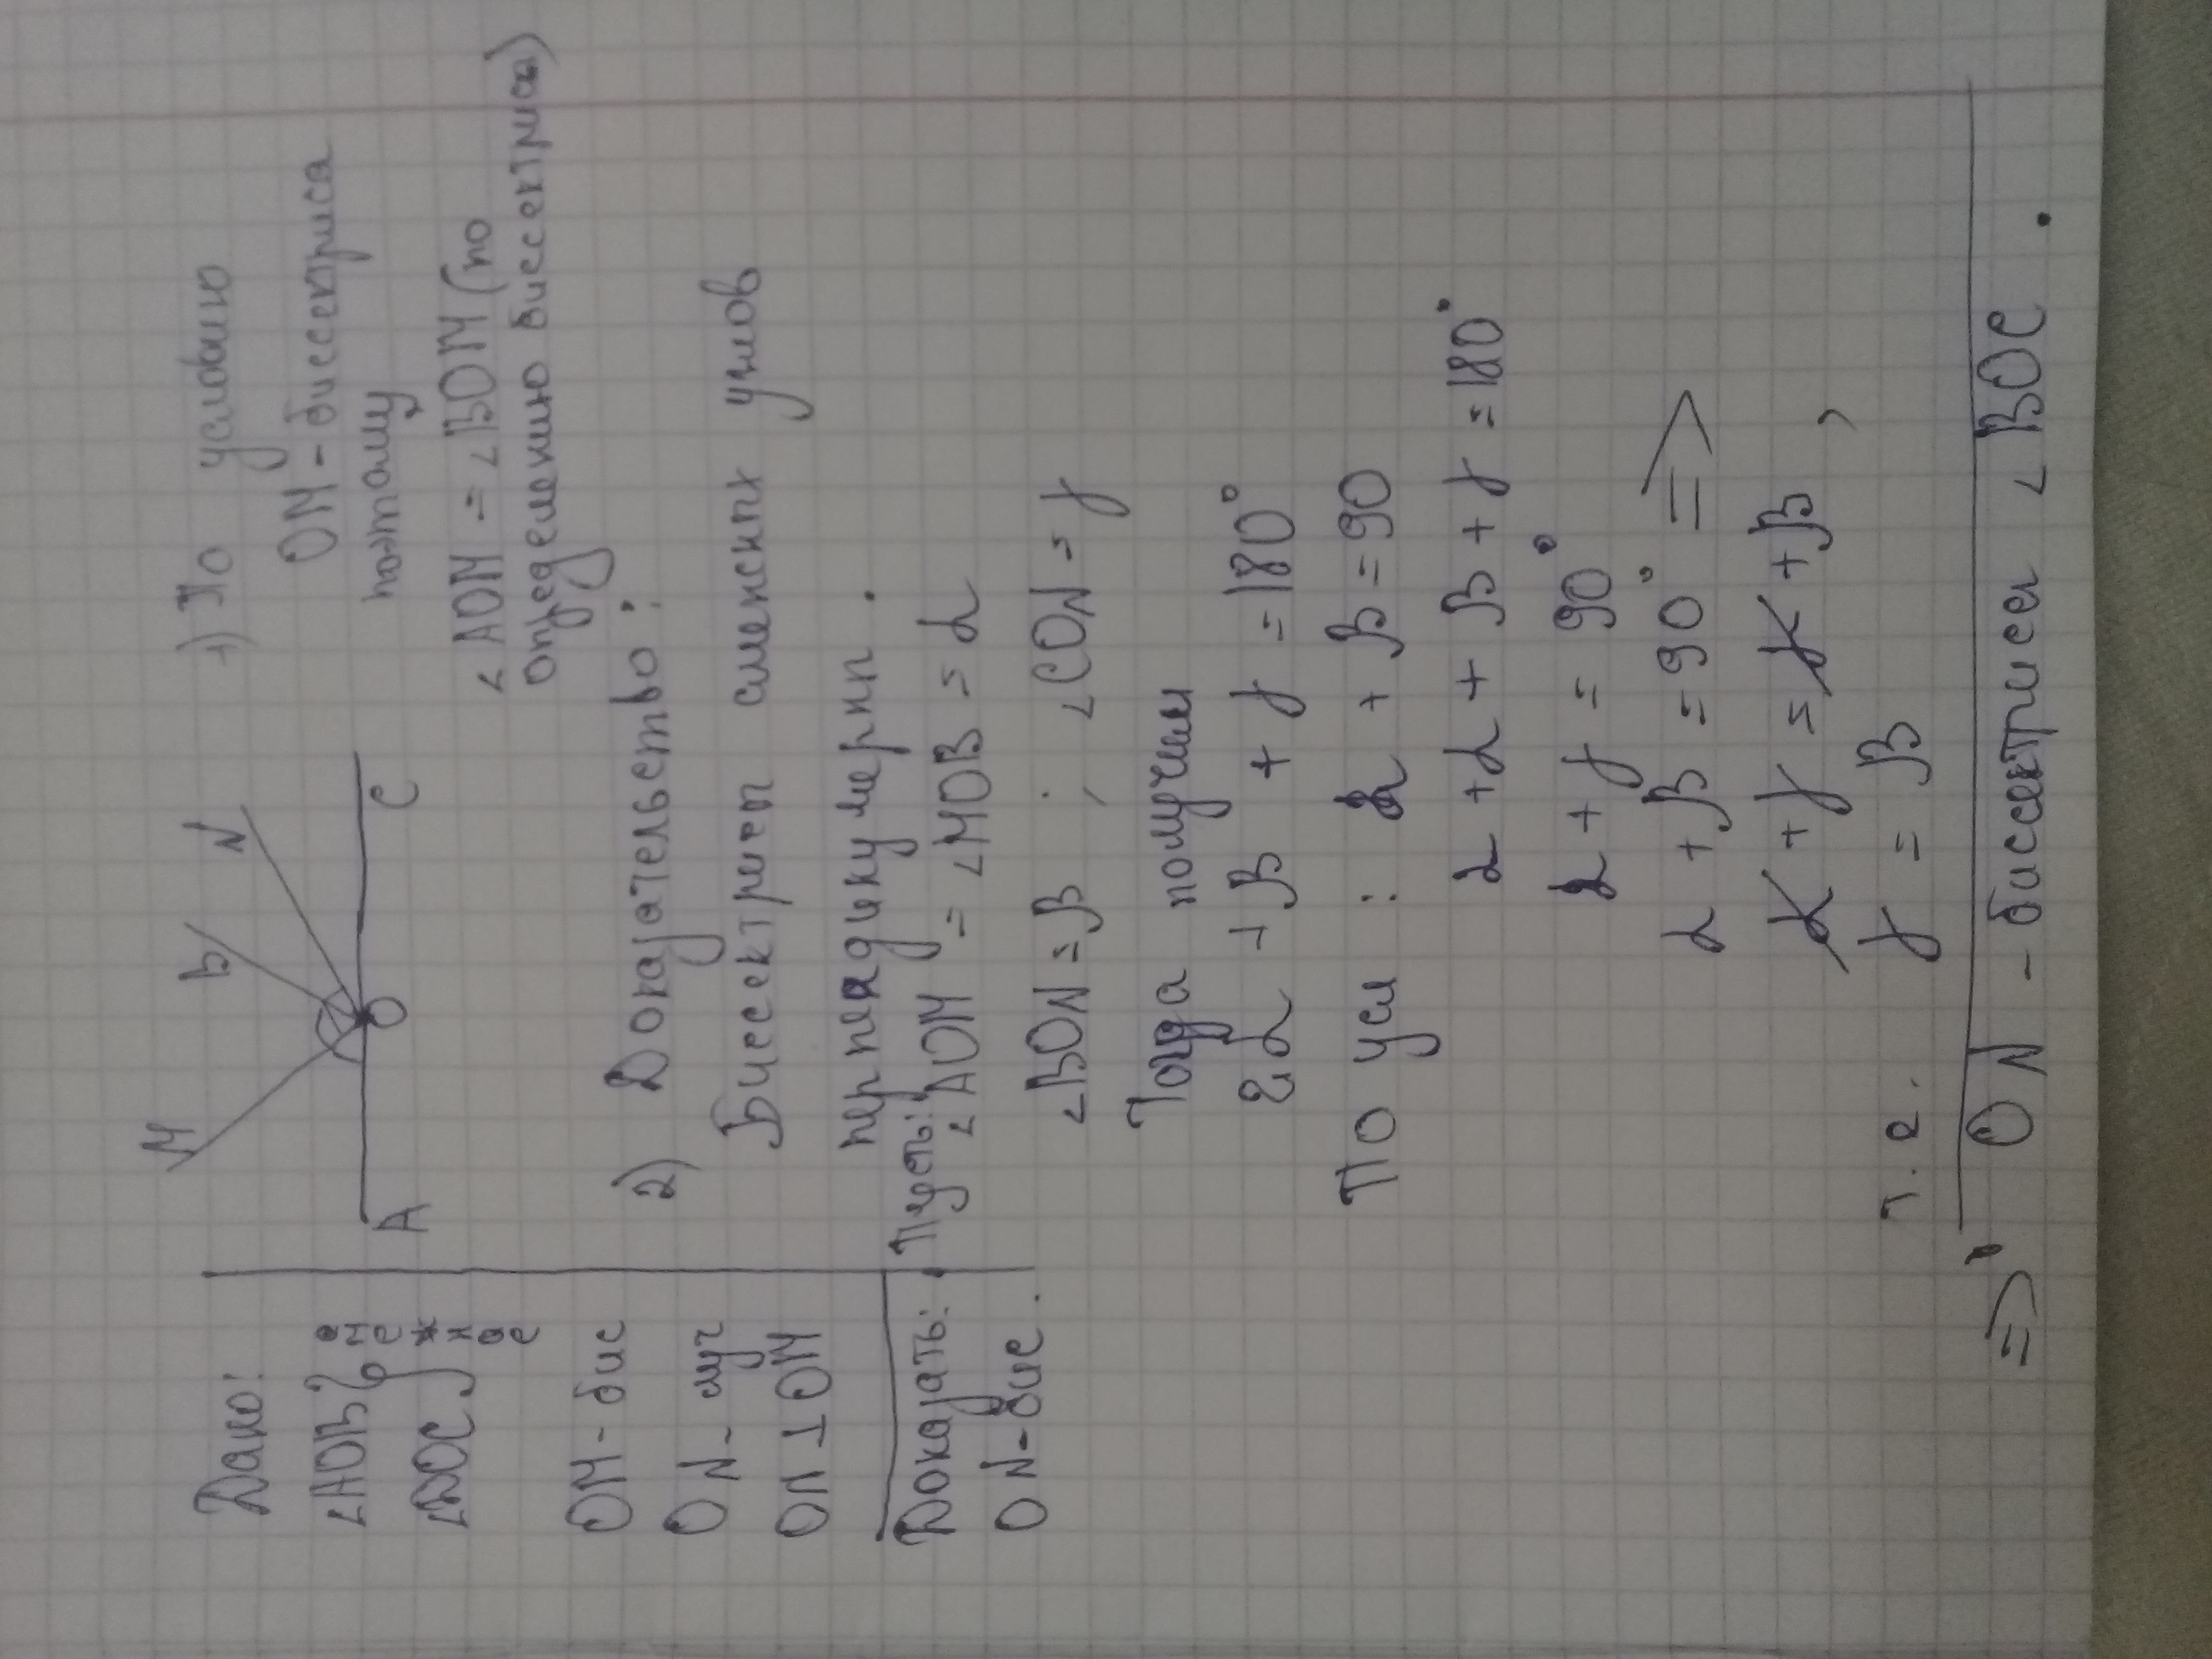 Дано:
∠AOB } смежные
∠BOC
OM - бис
ON - луч
ON ⊥ OM
Доказать:
ON - бис.
M
B
N
A
O
C
1) По условию
OM - биссектриса
поэтому
∠AOM = ∠BOM (по
определению биссектрисы)
2) Доказательство:
Биссектрисы смежных углов
перпендикулярны.
Пусть:
∠AOM = ∠MOB = α
∠BON = β ; ∠CON = γ
Тогда получим
2α + β + γ = 180°
По усл: α + β = 90
α + α + β + γ = 180°
α + γ = 90°
α + β = 90° =>
α + γ = α + β,
т.е. γ = β
=> ON - биссектрисей ∠BOC.